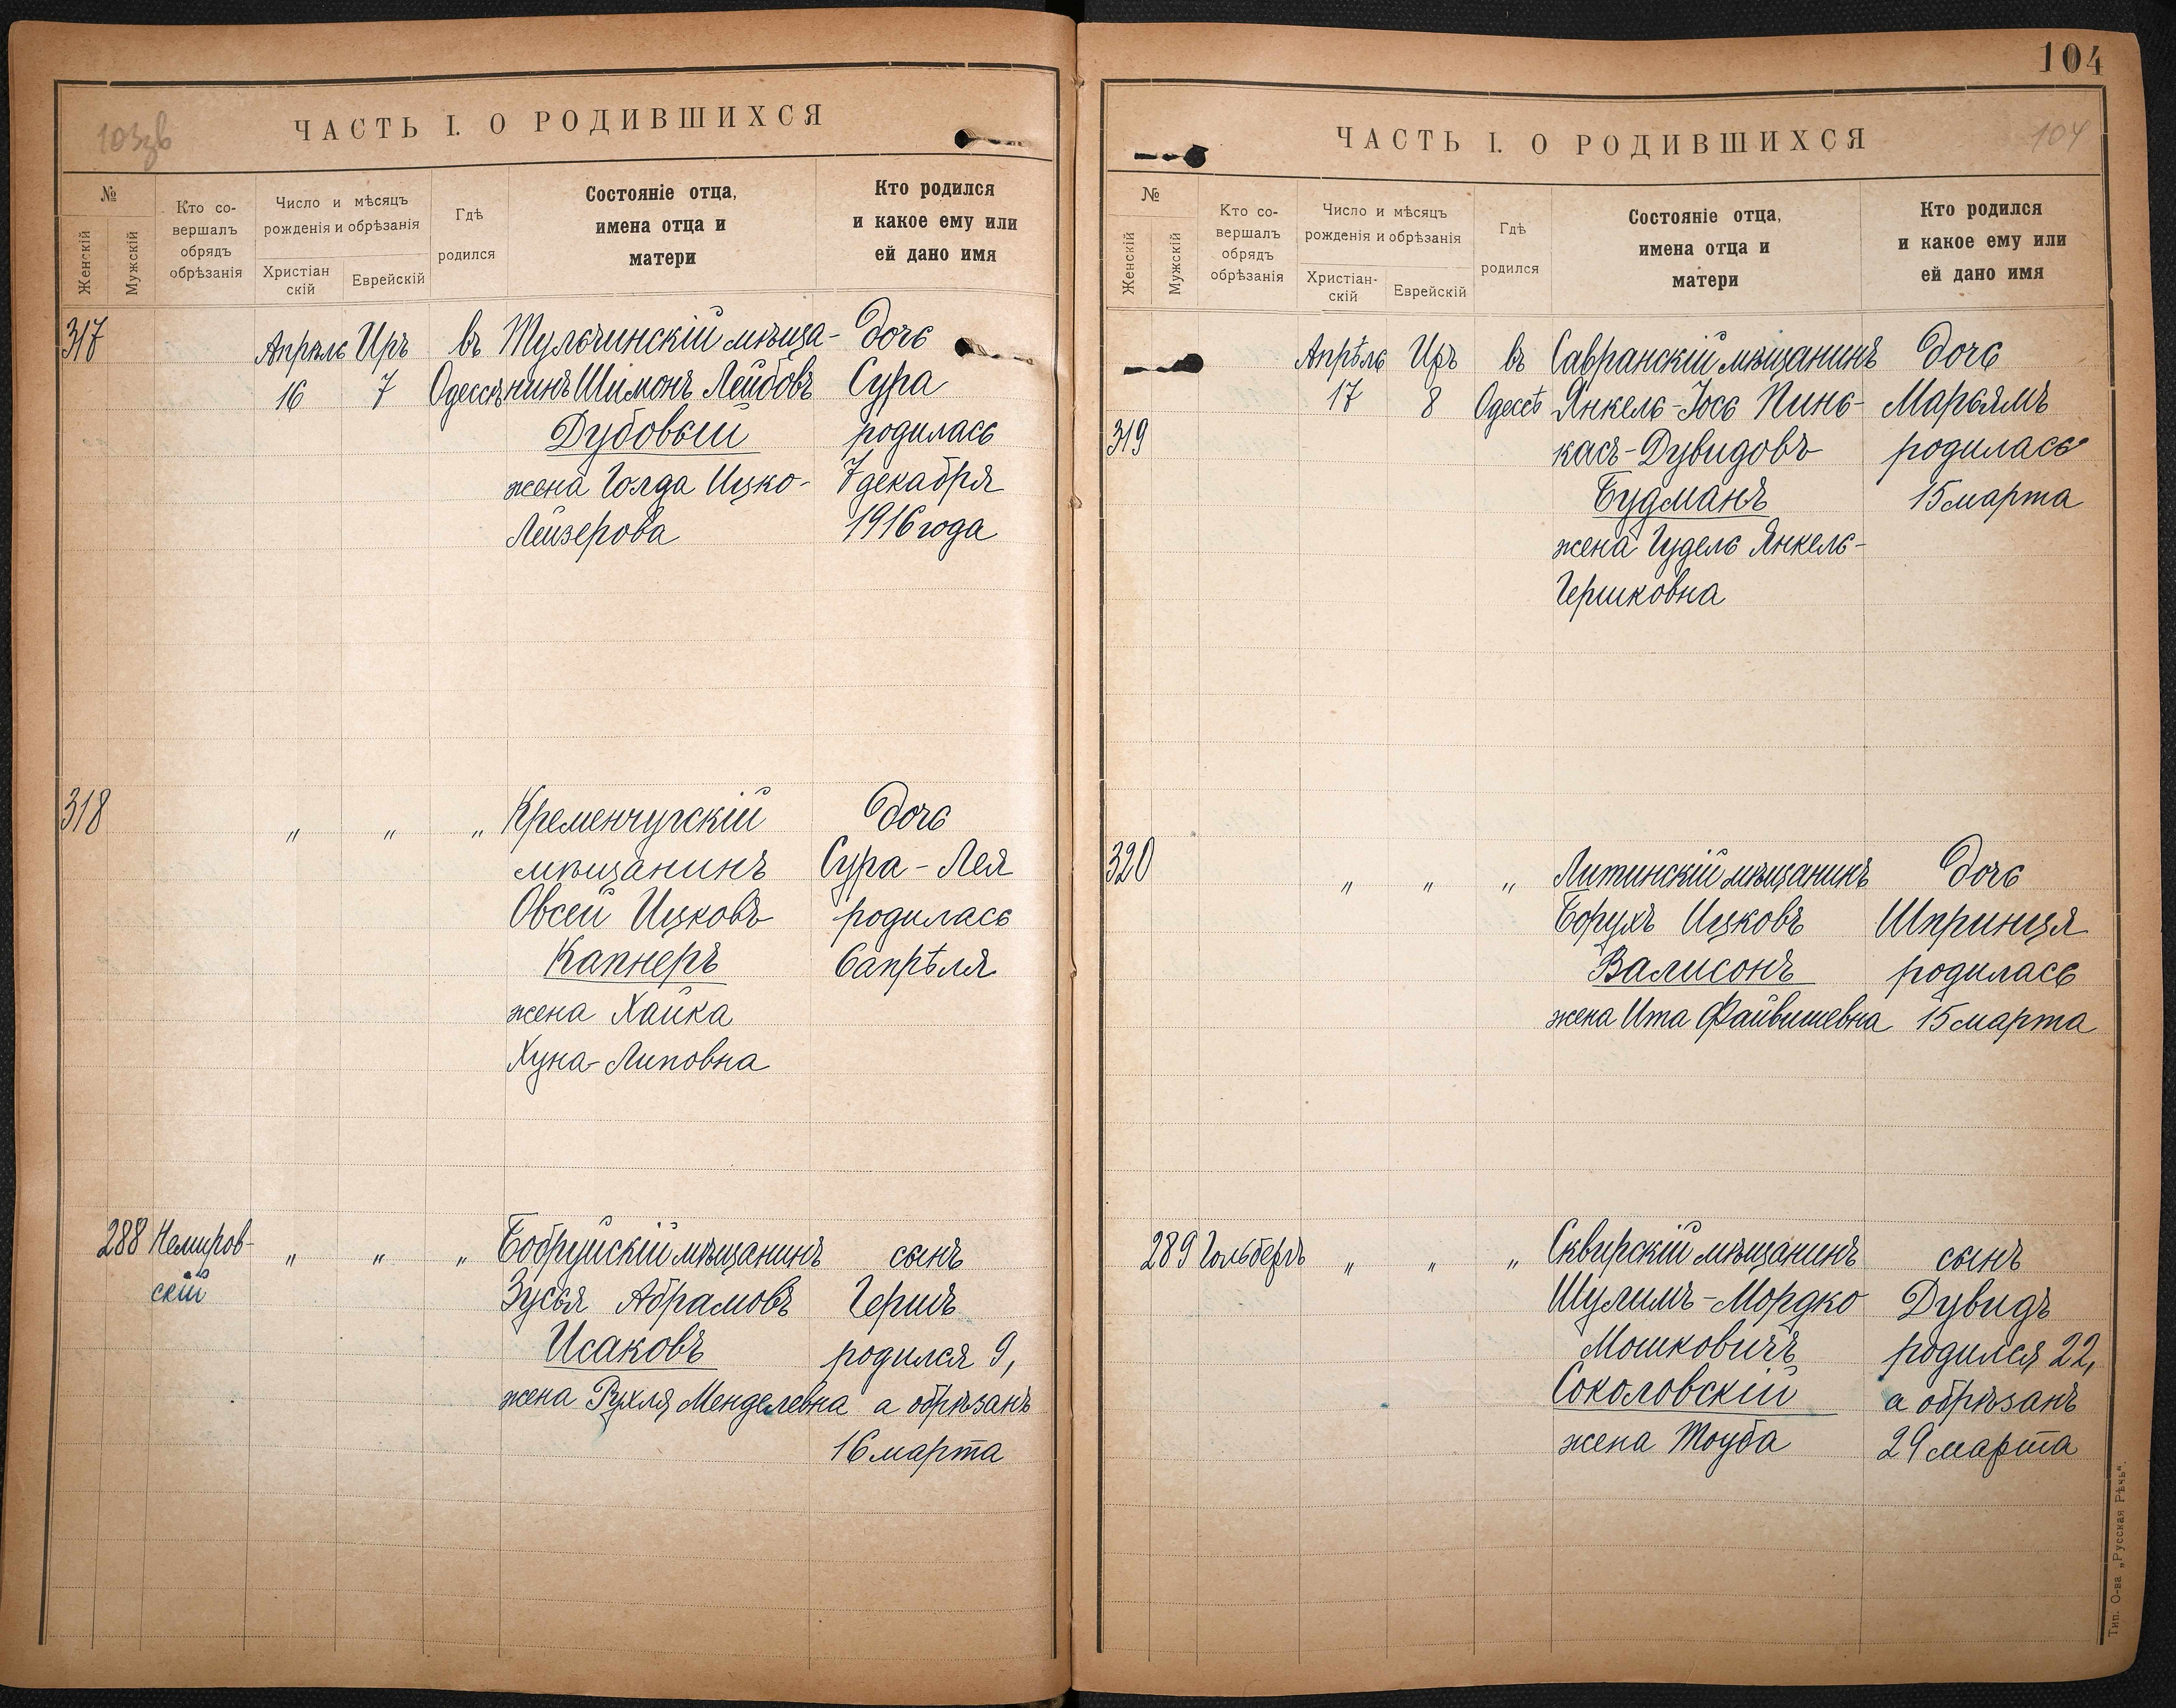 103зв
ЧАСТЬ I. О РОДИВШИХСЯ
№
Женскій
Мужскій
Кто со-
вершалъ
обрядъ
обрѣзанія
Число и мѣсяцъ
рожденія и обрѣзанія
Христіан
скій
Еврейскій
Гдѣ
родился
Состояніе отца,
имена отца и
матери
Кто родился
и какое ему или
ей дано имя
317 Апрѣль Иръ въ Тульчинскій мѣща- дочь
16 7 Одессѣ нинъ Шимонъ Лейбовъ Сура
Дубовый родилась
жена Голда Ицко- 7 декабря
Лейзерова 1916 года
318 " " " Кременчугскій дочь
мѣщанинъ Сура-Лея
Овсей Ицковъ родилась
Капнеръ 6 апрѣля
жена Хайка
Хуна-Липовна
288 Немиров- " " " Бобруйскій мѣщанинъ сынъ
скій Зусья Абрамовъ Гершъ
Исаковъ родился 9,
жена Рухля Менделевна а обрѣзанъ
16 марта
104
ЧАСТЬ I. О РОДИВШИХСЯ
104
№
Женскій
Мужскій
Кто со-
вершалъ
обрядъ
обрѣзанія
Число и мѣсяцъ
рожденія и обрѣзанія
Христіан-
скій
Еврейскій
Гдѣ
родился
Состояніе отца,
имена отца и
матери
Кто родился
и какое ему или
ей дано имя
Апрѣль Иръ въ Савранскій мѣщанинъ дочь
17 8 Одессѣ Янкель-Іось Пинь- Марьямъ
319 касъ-Дувидовъ родилась
Будманъ 15 марта
жена Гудель Янкель-
Гершковна
320 " " " Литинскій мѣщанинъ дочь
Борухъ Ицковъ Шпринця
Валисонъ родилась
жена Ита Файвишевна 15 марта
289 Гольбергъ " " " Сквирскій мѣщанинъ сынъ
Шулимъ-Мордко Дувидъ
Мошковичъ родился 22,
Соколовскій а обрѣзанъ
жена Тоуба 29 марта
Тип. О-ва „Русская Рѣчь“.